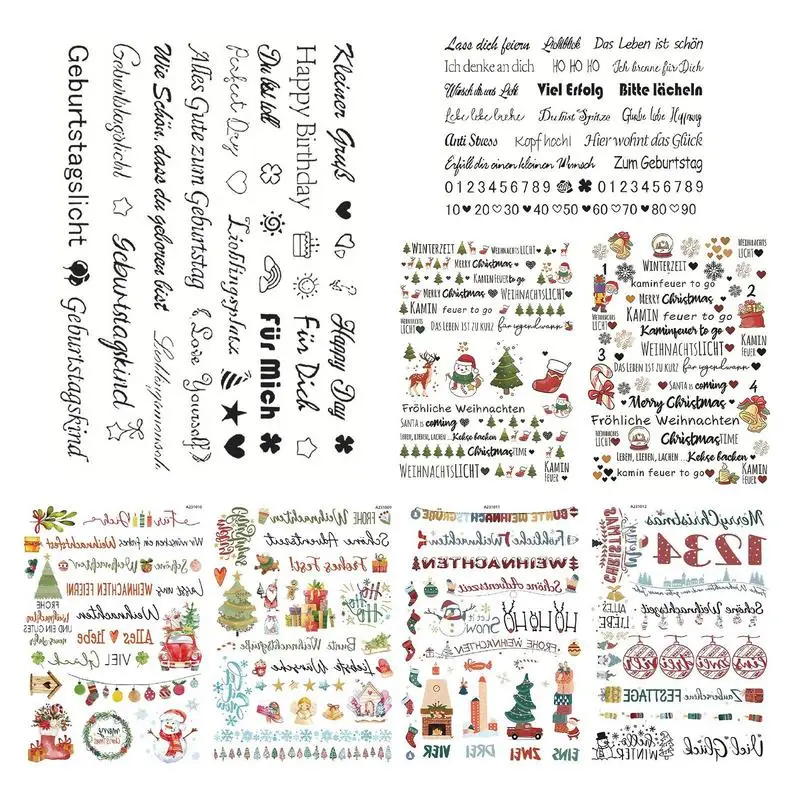 Kleiner Gruß Happy Day
Happy Birthday Für Dich
Du bist toll Für Mich
Perfect Day Lieblingsplatz
Alles Gute zum Geburtstag Love Yourself
Wie Schön, dass du geboren bist Lieblingsmensch
Geburtstagslicht Geburtstagskind
Geburtstagslicht Geburtstagskind
Lass dich feiern Lichtblick Das Leben ist schön
Ich denke an dich HO HO HO Ich brenne für Dich
Wünsch dir was Liebe Viel Erfolg Bitte lächeln
Lebe liebe lache Du bist Spitze Glaube Liebe Hoffnung
Anti Stress Kopf hoch! Hier wohnt das Glück
Erfüll dir einen kleinen Wunsch Zum Geburtstag
0123456789 0123456789
10 ♥ 20 ♡ 30 ♥ 40 ♡ 50 ♥ 60 ♡ 70 ♥ 80 ♥ 90
WINTERZEIT WEIHNACHTSLICHT
MERRY Christmas
KAMINFEUER TO GO
MERRY Christmas WEIHNACHTSLICHT
KAMIN feuer to go
WEIHNACHTSLICHT DAS LEBEN IST ZU KURZ für irgendwann
Fröhliche Weihnachten
SANTA IS coming
LEBEN, LIEBEN, LACHEN ...Kekse backen
ChristmasTIME
WEIHNACHTSLICHT KAMIN FEUER
WEIHNACHTSLICHT
1 WINTERZEIT
kaminfeuer to go 2
WEIHNACHTSLICHT MERRY Christmas
KAMIN feuer to go
Kaminfeuer to go
3 WEIHNACHTSLICHT KAMIN FEUER
DAS LEBEN IST ZU KURZ für irgendwann
SANTA IS coming 4
Merry Christmas
Fröhliche Weihnachten
WEIHNACHTSLICHT ChristmasTIME
LEBEN, LIEBEN, LACHEN ...Kekse backen
kamin feuer to go KAMIN FEUER
A231010
Für Dich
Wir wünschen frohes Weihnachtsfest
Schöne Weihnachten
Lasst uns WEIHNACHTEN FEIERN!
FROHE Weihnachten UND EIN GUTES neues Jahr
Weihnachten
Alles Liebe
VIEL Glück
merry CHRISTMAS
A231009
FROHE Weihnachten
Schöne Adventszeit
Frohes Fest!
Ho Ho Ho
Bunte Weihnachtsgrüße
Liebste Wünsche
A231011
BUNTE WEIHNACHTSGRÜẞE
Fröhliche Weihnachten
WEIHNACHTEN
Schöne Adventszeit
Let It Snow HO HO HO
FROHE WEIHNACHTEN
EINS ZWEI DREI VIER
A231012
Merry Christmas
CHRISTMAS
1234
ALLES LIEBE Schöne Weihnachtszeit
Eins Zwei Drei Vier
Zauberschöne FESTTAGE
Viel Glück hello WINTER